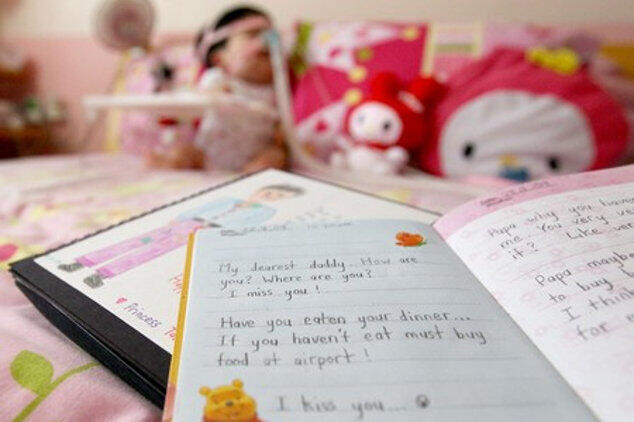 My dearest daddy... How are
you? Where are you?
I miss you!
Have you eaten your dinner...
If you haven't eat must buy
food at airport!
I kiss you...
Papa why you haven
me. You very ver
it? Like ver
Papa maybe
to buy
I think
for
Princess